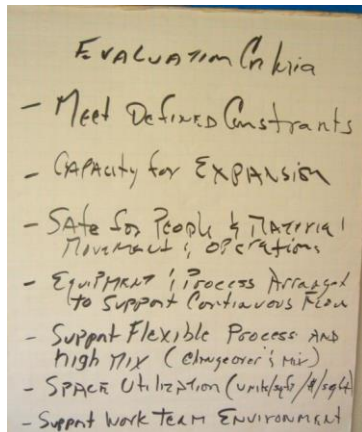 Evaluation Criteria
- Meet Defined Constraints
- Capacity for Expansion
- Safe for People & Material
Movement & Operations
- Equipment & Process Arranged
to Support Continuous Flow
- Support Flexible Process and
High Mix (Changeover & Mix)
- Space Utilization (units/sqft/$/sqft)
- Support Work Team Environment